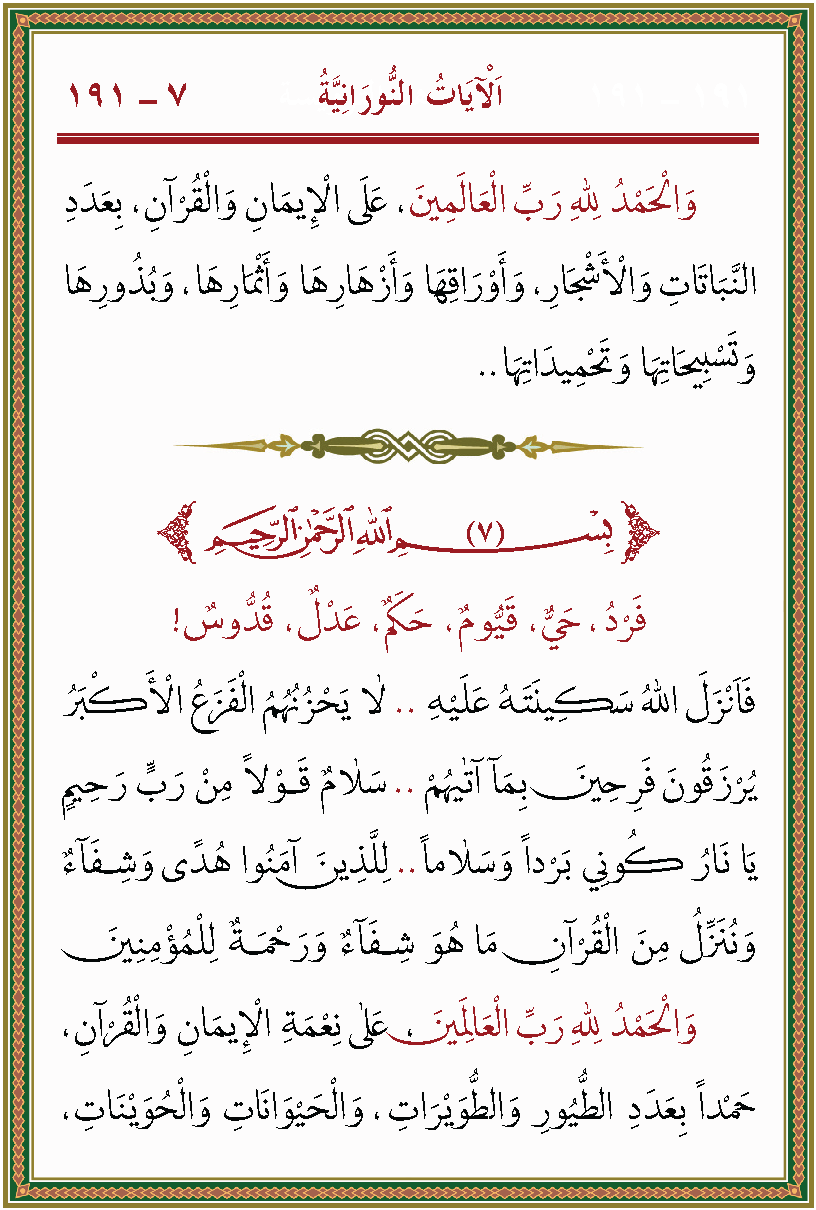 اَلْآيَاتُ النُّورَانِيَّةُ ٧ – ١٩١
وَالْحَمْدُ لِلهِ رَبِّ الْعَالَمِينَ، عَلَى الْإِيمَانِ وَالْقُرْآنِ، بِعَدَدِ
النَّبَاتَاتِ وَالْأَشْجَارِ، وَأَوْرَاقِهَا وَأَزْهَارِهَا وَأَثْمَارِهَا، وَبُذُورِهَا
وَتَسْبِيحَاتِهَا وَتَحْمِيدَاتِهَا..
بِسْــــمِ (٧) اللهِ الرَّحْمٰنِ الرَّحِيمِ
فَرْدُ، حَيٌّ، قَيُّومٌ، حَكَمٌ، عَدْلٌ، قُدُّوسٌ!
فَاَنْزَلَ اللهُ سَكِينَتَهُ عَلَيْهِ .. لَا يَحْزُنُهُمُ الْفَزَعُ الْأَكْبَرُ
يُرْزَقُونَ فَرِحِينَ بِمَآ آتٰيهُمْ .. سَلَامٌ قَوْلاً مِنْ رَبٍّ رَحِيمٍ
يَا نَارُ كُونِي بَرْداً وَسَلَاماً .. لِلَّذِينَ آمَنُوا هُدًى وَشِفَآءٌ
وَنُنَزِّلُ مِنَ الْقُرْآنِ مَا هُوَ شِفَآءٌ وَرَحْمَةٌ لِلْمُؤْمِنِينَ
وَالْحَمْدُ لِلهِ رَبِّ الْعَالَمِينَ، عَلٰى نِعْمَةِ الْإِيمَانِ وَالْقُرْآنِ،
حَمْداً بِعَدَدِ الطُّيُورِ وَالطُّوَيْرَاتِ، وَالْحَيْوَانَاتِ وَالْحُوَيْنَاتِ،